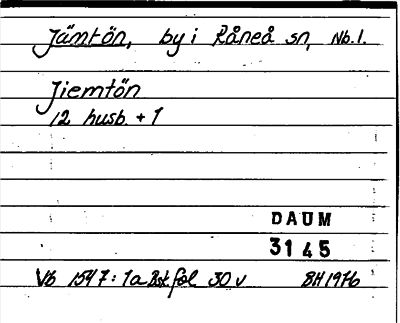 Jämtön, by i Råneå sn, Nb.l.
Jiemtön
12 husb. + 1
DAUM
3145
Vb 1547: 1a Bsk fol 30 v BH 1976